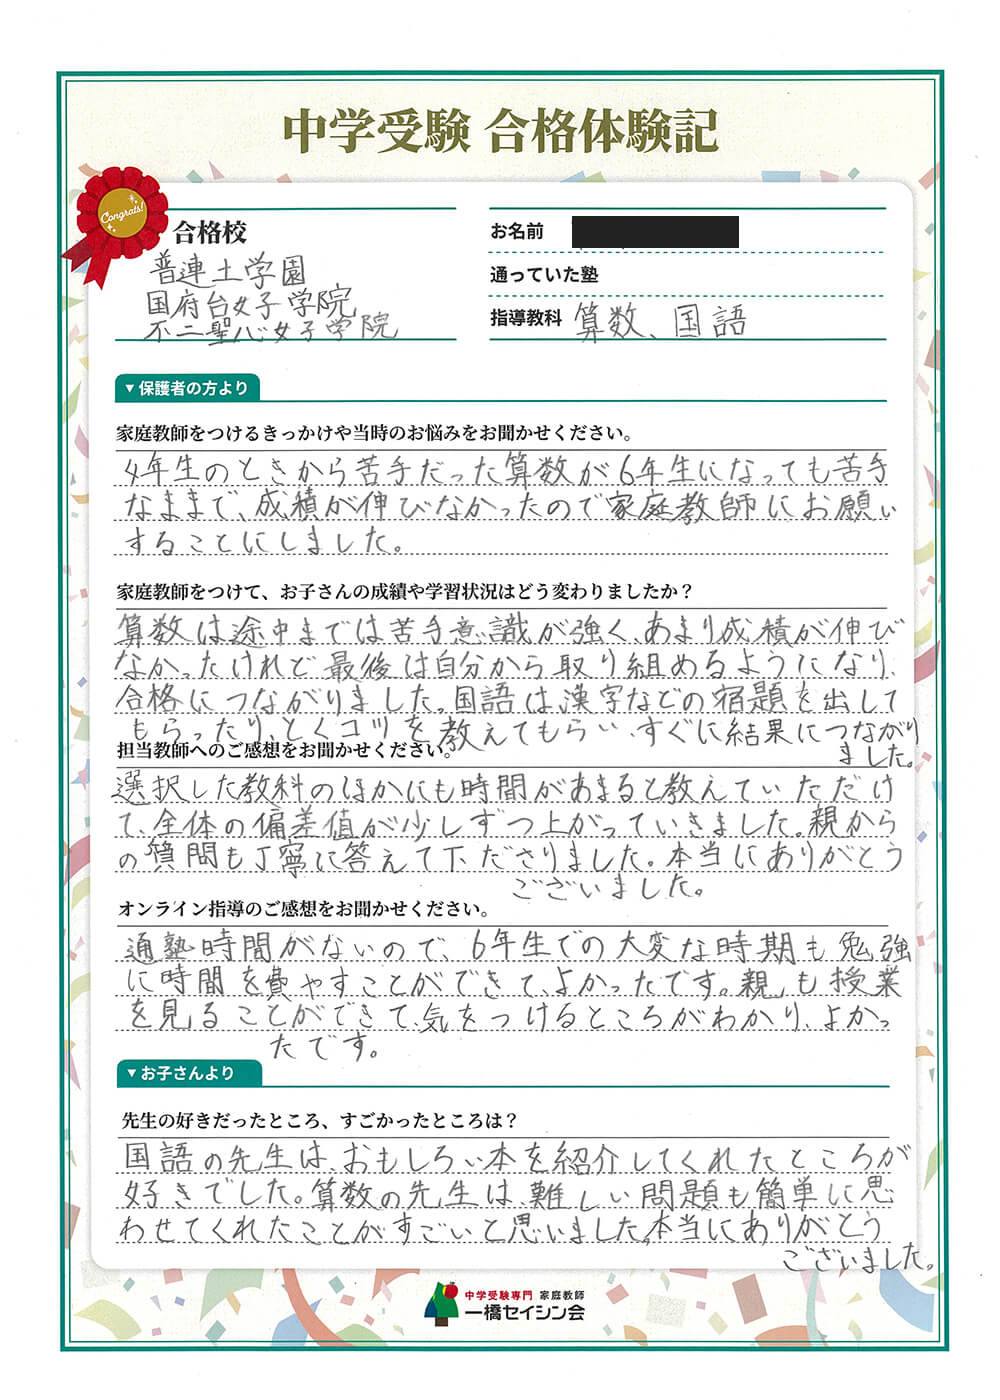 中学受験 合格体験記
Congrats!
合格校
普連土学園
国府台女子学院
不二聖心女子学院
お名前
通っていた塾
指導教科 算数、国語
▼保護者の方より
家庭教師をつけるきっかけや当時のお悩みをお聞かせください。
4年生のときから苦手だった算数が6年生になっても苦手
なままで、成積が伸びなかったので家庭教師にお願い
することにしました。
家庭教師をつけて、お子さんの成績や学習状況はどう変わりましたか？
算数は途中までは苦手意識が強く、あまり成積が伸び
なかったけれど最後は自分から取り組めるようになり、
合格につながりました。国語は漢字などの宿題を出して
もらったり、とくコツを教えてもらい、すぐに結果につながり
ました。
担当教師へのご感想をお聞かせください。
選択した教科のほかにも時間があまると教えていただけ
て、全体の偏差値が少しずつ上がっていきました。親から
の質問も丁寧に答えて下ださりました。本当にありがとう
ございました。
オンライン指導のご感想をお聞かせください。
通塾時間がないので、6年生での大変な時期も勉強
に時間を費やすことができて、よかったです。親も授業
を見ることができて、気をつけるところがわかり、よかっ
たです。
▼お子さんより
先生の好きだったところ、すごかったところは？
国語の先生は、おもしろい本を紹介してくれたところが
好きでした。算数の先生は、難しい問題も簡単に思
わせてくれたことがすごいと思いました。本当にありがとう
ございました。
中学受験専門 家庭教師
一橋セイシン会